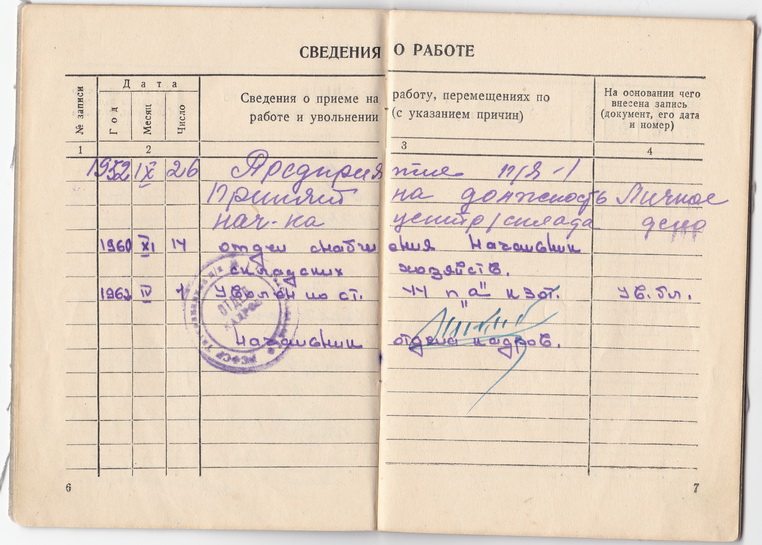 СВЕДЕНИЯ О РАБОТЕ
№ записи
Дата
Год
Месяц
Число
Сведения о приеме на работу, перемещениях по
работе и увольнении (с указанием причин)
На основании чего
внесена запись
(документ, его дата
и номер)
1 2 3 4
1952 IX 26 Предприятие п/я-1
принят на должность Личное
нач-ка центр/склада дело
1960 XI 14 отдел снабжения Начальник
складских хозяйств.
1962 IV 7 Уволен по ст. 44 п "а" КЗот. Ув. бл.
ОТДЕЛ
КАДРОВ
РСФСР
Начальник отдела кадров.
6 7